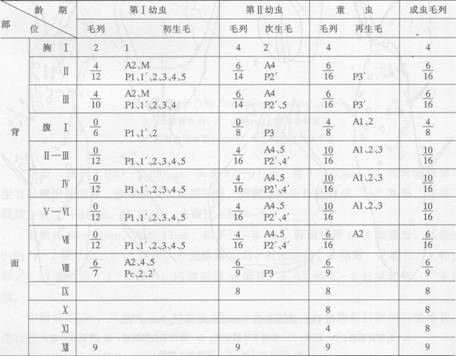 龄 期 第Ⅰ幼虫 第Ⅱ幼虫 童 虫 成虫毛列
部 位 毛列 初生毛 毛列 次生毛 毛列 再生毛
胸 Ⅰ 2 1 4 2 4 4
Ⅱ 4/12 A2、M P1、1′、2、3、4、5 6/14 A4 P2′ 6/16 P3′ 6/16
Ⅲ 4/10 A2、M P1、1′、2、3、4 6/14 A4 P2′、5 6/16 P3′ 6/16
背 腹 Ⅰ 0/6 P1、1′、2 0/8 P3 4/8 A1、2 4/8
Ⅱ—Ⅲ 0/12 P1、1′、2、3、4、5 4/16 A4、5 P2′、4′ 10/16 A1、2、3 10/16
Ⅳ 0/12 P1、1′、2、3、4、5 4/16 A4、5 P2′、4′ 10/16 A1、2、3 10/16
Ⅴ—Ⅵ 0/12 P1、1′、2、3、4、5 4/16 A4、5 P2′、4′ 10/16 A1、2、3 10/16
Ⅶ 0/12 P1、1′、2、3、4、5 4/16 A4、5 P2′、4′ 6/16 A2 6/16
面 Ⅷ 6/7 A2、4、5 Pc、2、2′ 6/9 P3 6/9 6/9
Ⅸ 8 8 8
Ⅹ 8 8
Ⅺ 4 8
Ⅻ 9 9 9 9